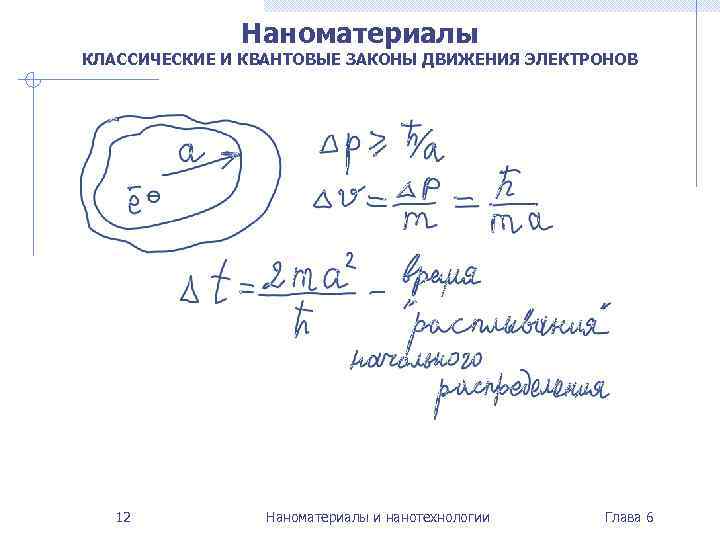 Наноматериалы
КЛАССИЧЕСКИЕ И КВАНТОВЫЕ ЗАКОНЫ ДВИЖЕНИЯ ЭЛЕКТРОНОВ
a
ē ⊖
Δp ≥ ħ/a
Δv = Δp/m = ħ/ma
Δt = 2ma²/ħ – время
"расплывания"
начального
распределения
12 Наноматериалы и нанотехнологии Глава 6